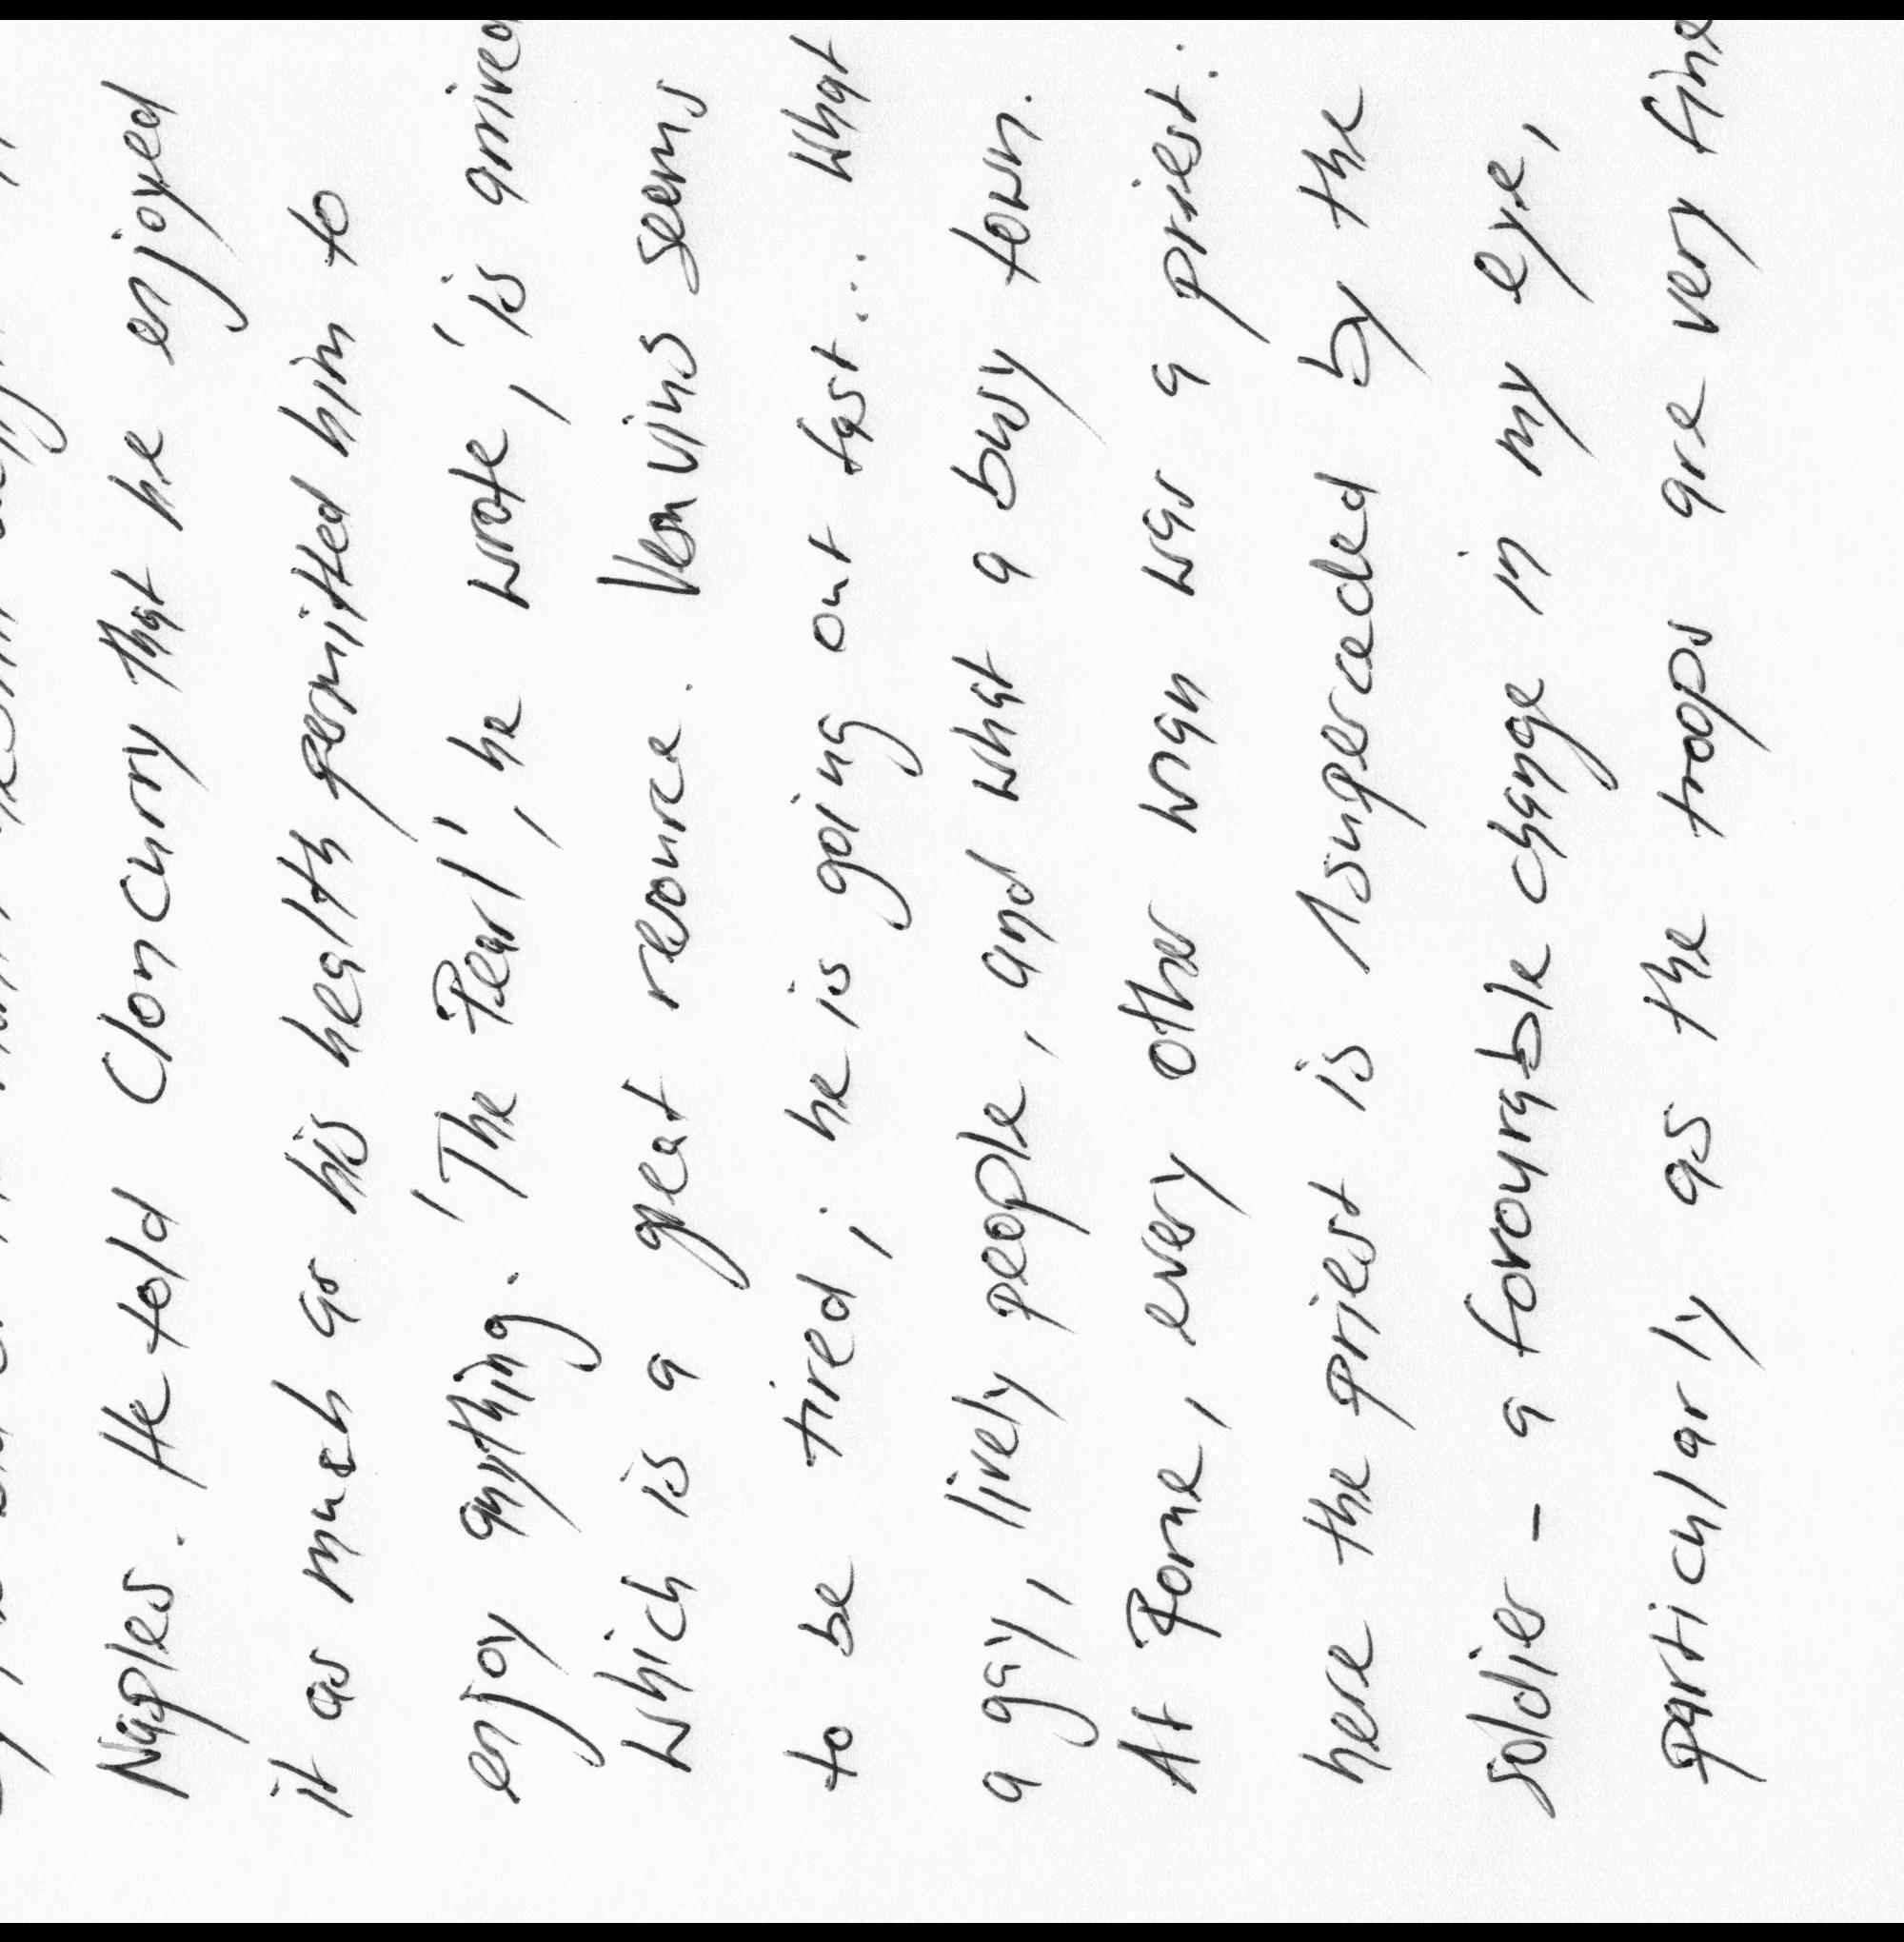 Naples. He told Cloncurry that he enjoyed
it as much as his health permitted him to
enjoy anything. 'The Pearl', he wrote, 'is arrived
which is a great resource. Vesuvius seems
to be tired; he is going out fast... What
a gay, lively people, and what a busy town.
At Rome, every other man was a priest:
here the priest is superceded by the
soldier - a favourable change in my eye,
particularly as the troops are very fine